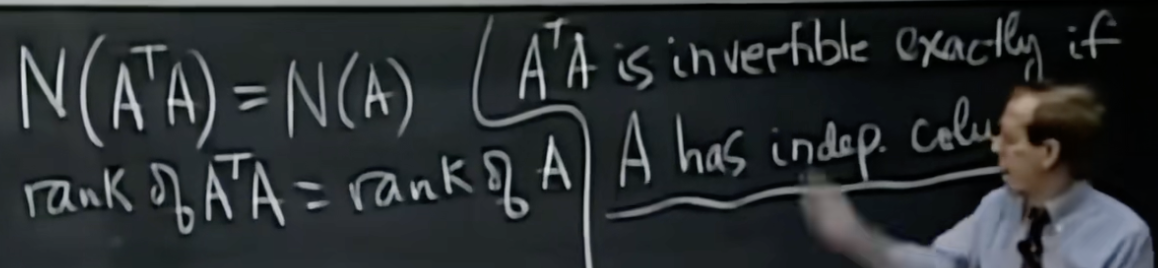 N(AᵀA) = N(A)
rank of AᵀA = rank of A
AᵀA is invertible exactly if
A has indep. colu